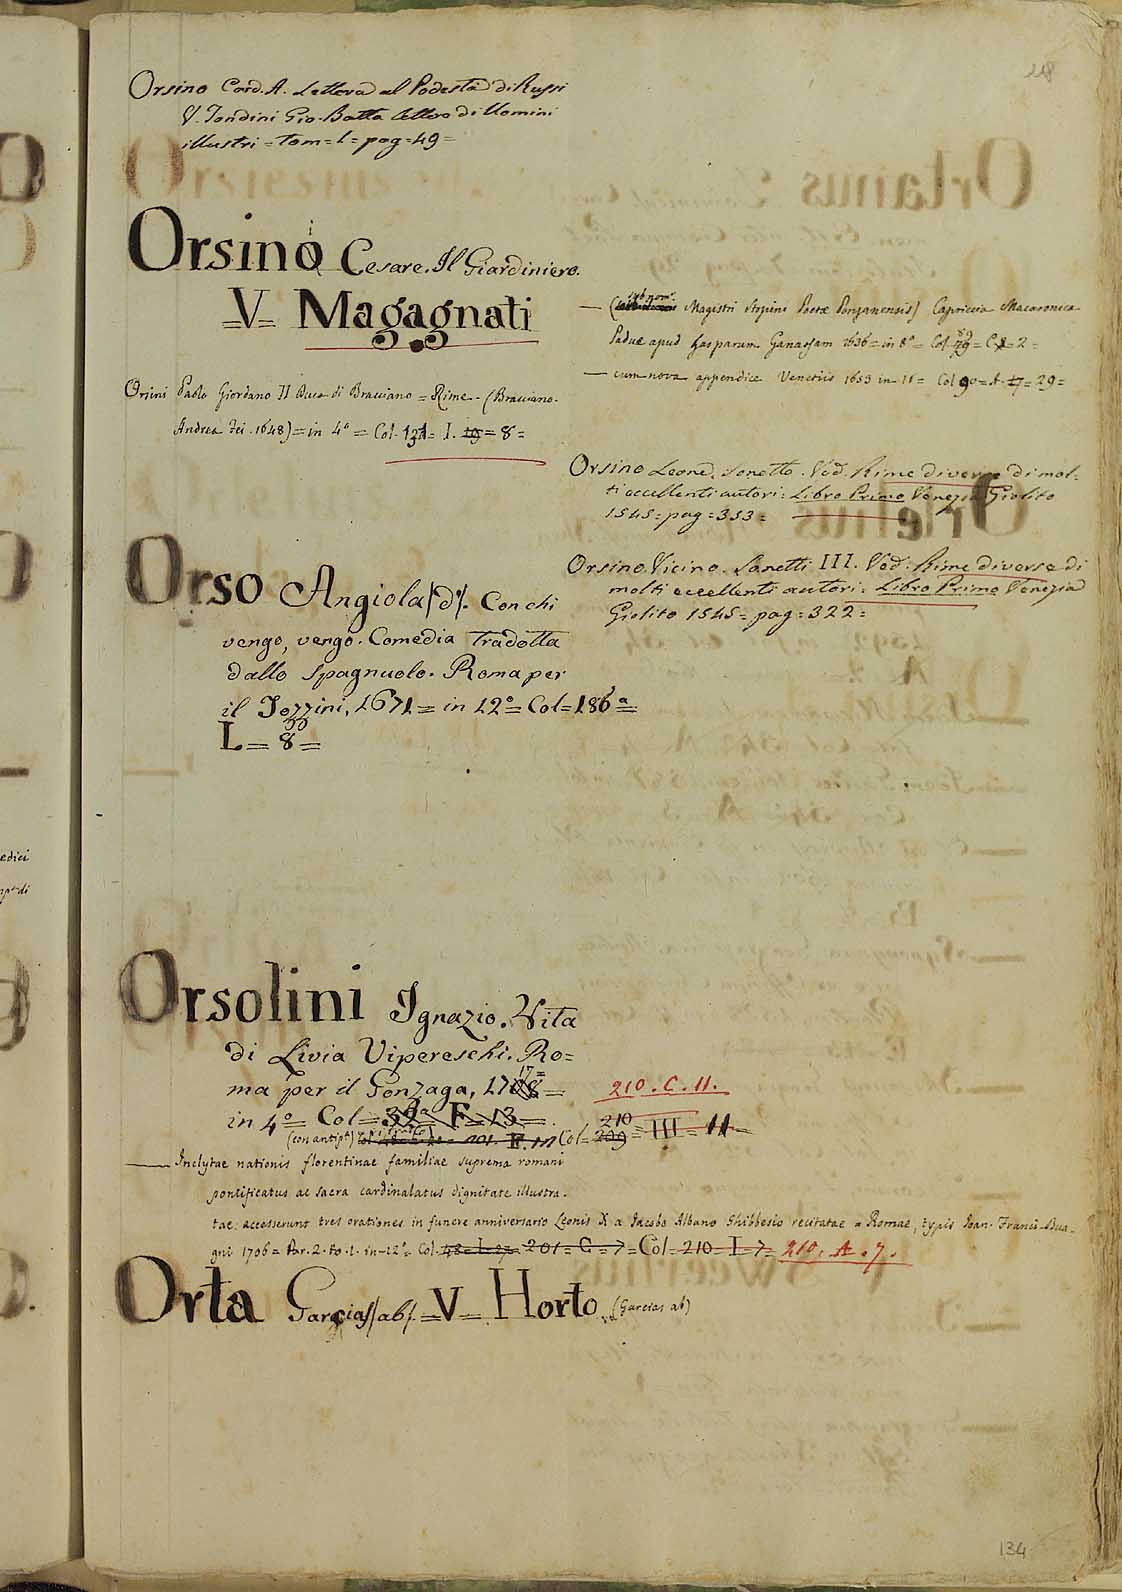 118
Orsino Card. A. Lettera al Podestà di Russi
V. Tondini Gio. Batta lettere di Uomini
illustri = tom = 1 = pag = 49 =
Orsino Cesare. Il Giardiniero.
=V= Magagnati
— (sub nom. Magistri Stopini Poetæ Ponzanensis) Capriccia Macaronica
Paduæ apud Gasparum Ganassam 1636 = in 8° = Col. = 2 =
— cum nova appendice Venetiis 1653 in = Col 90 = A. 17 = 29 =
Orsini Paolo Giordano II Duca di Bracciano = Rime - (Bracciano.
Andrea Fei. 1648) = in 4° = Col. 131 = I. 19 = 8 =
Orsino Leone. Sonetto. Ved. Rime diverse di mol-
ti eccellenti autori: Libro Primo Venezia Giolito
1545 = pag = 353 =
Orsino Vicino. Sonetti III. Ved. Rime diverse di
molti eccellenti autori: Libro Primo Venezia
Giolito 1545 = pag = 322 =
Orso Angiola (d'). Con chi
vengo, vengo. Comedia tradotta
dallo Spagnuolo. Roma per
il Tozzini, 1671 = in 12° = Col = 186ª =
L = 8 =
Orsolini Ignazio. Vita
di Livia Vipereschi. Ro=
ma per il Gonzaga, 1717 =
in 4° = Col = 32 = F = 13 =
210. C. 11.
(con antip.) Col = 209 210 = III = 11 =
— Inclytae nationis florentinae familiae suprema romani
pontificatus ac sacra cardinalatus dignitate illustra.
tae: accesserunt tres orationes in funere anniversario Leonis X a Jacobo Albano Ghibbesio recitatae = Romae, typis Joan. Franci. Bua-
gni 1706 = Par. 2. to. 1. in = 12° = Col. 48 = L = 27 = 201 = G = 7 = Col = 210 = I = 7 = 210. A. 7.
Orta Garcias (ab) =V= Horto (Garcias ab)
134